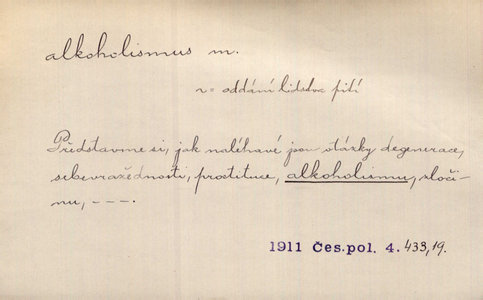 alkoholismus m.
= oddání lidstva pití
Představme si, jak naléhavé jsou otázky degenerace,
sebevražednosti, prostituce, alkoholismu, zloči-
nu, ---.
1911 Čes.pol. 4. 433,19.